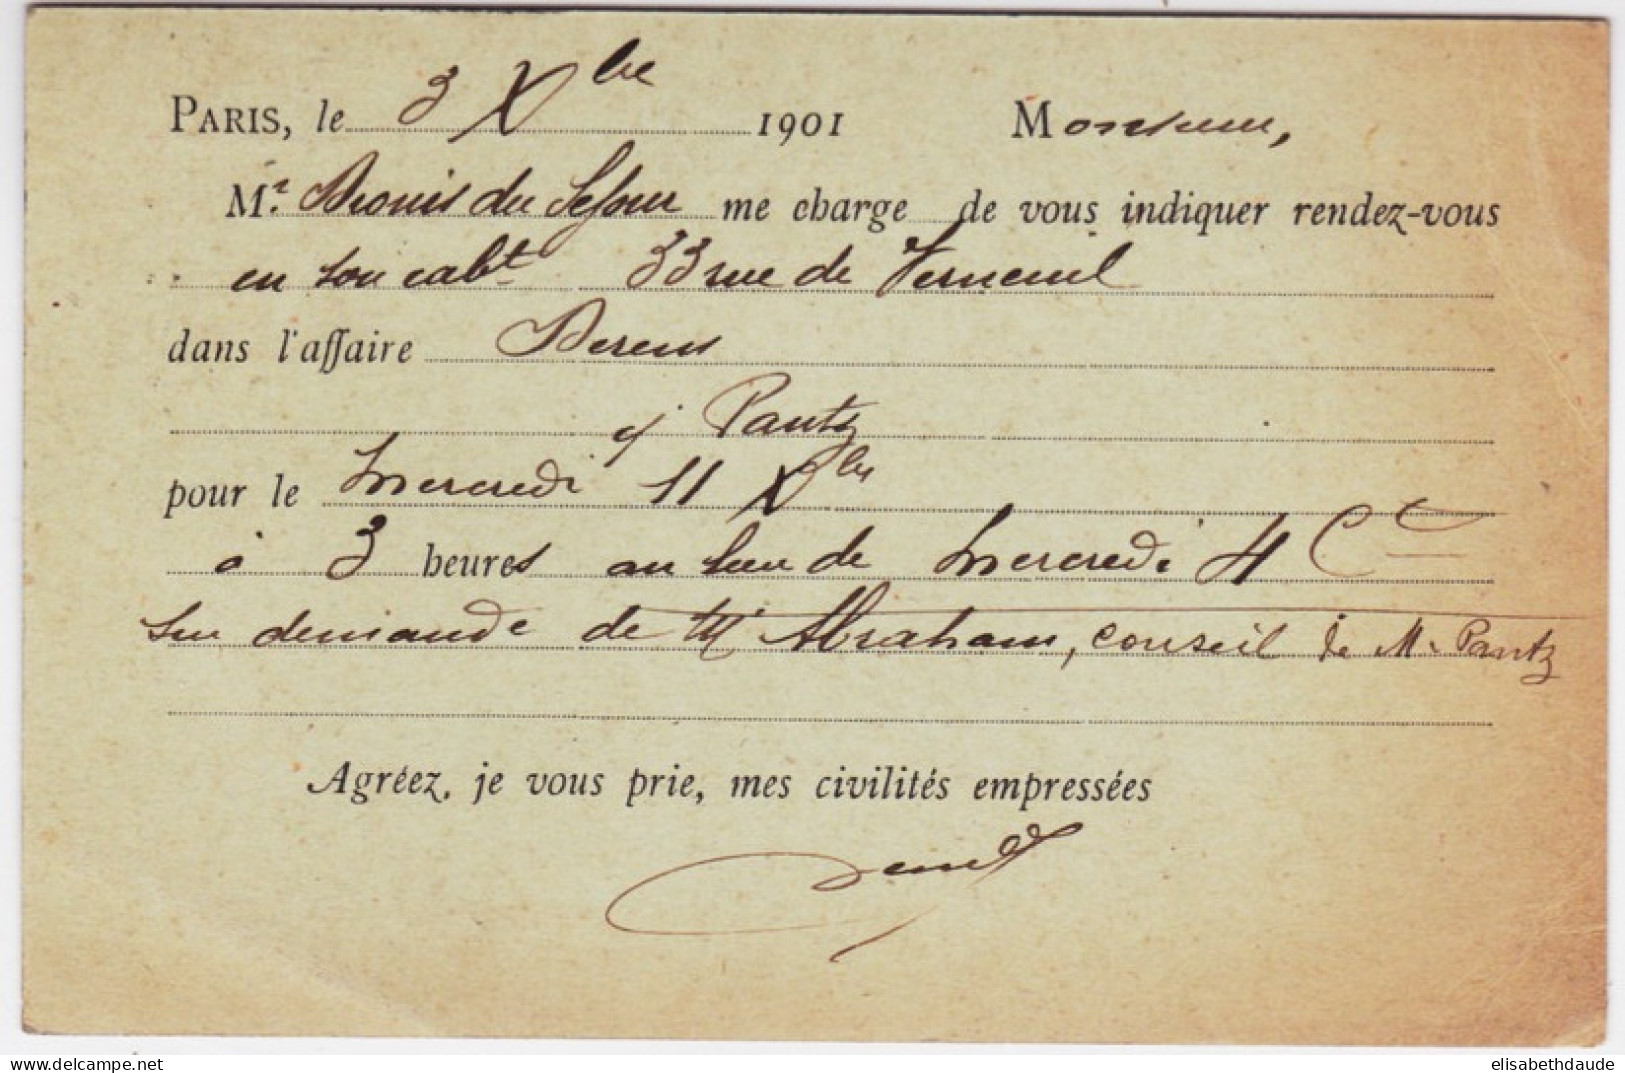 PARIS, le 3 Xbre 1901 Monsieur,
Mr. Dionis du Séjour me charge de vous indiquer rendez-vous
en son cabt 33 rue de Verneuil
dans l'affaire Derens
c/ Pantz
pour le Mercredi 11 Xbre
à 3 heures au lieu de Mercredi 4 Ct
sur demande de Me Abraham, conseil de Mr Pantz
Agréez, je vous prie, mes civilités empressées
elisabethdaude